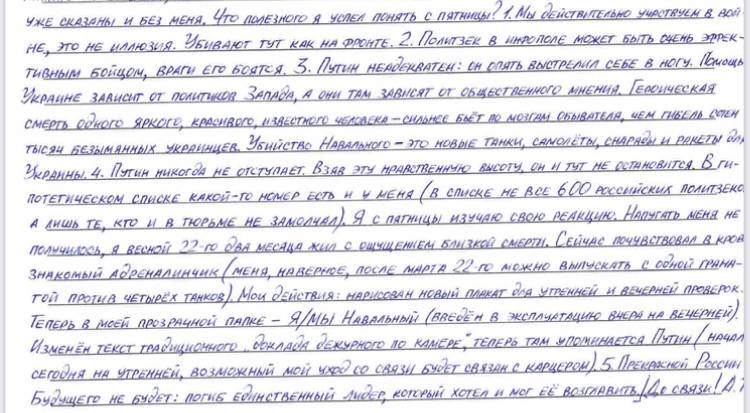 уже сказаны и без меня. Что полезного я успел понять с пятницы? 1. Мы действительно участвуем в вой-
не, это не иллюзия. Убивают тут как на фронте. 2. Политзек в инфополе может быть очень эффек-
тивным бойцом, враги его боятся. 3. Путин неадекватен: он опять выстрелил себе в ногу. Помощь
Украине зависит от политиков Запада, а они там зависят от общественного мнения. Героическая
смерть одного яркого, красивого, известного человека – сильнее бьёт по мозгам обывателя, чем гибель сотен
тысяч безымянных украинцев. Убийство Навального – это новые танки, самолёты, снаряды и ракеты для
Украины. 4. Путин никогда не отступает. Взяв эту нравственную высоту, он и тут не остановится. В ги-
потетическом списке какой-то номер есть и у меня (в списке не все 600 российских политзеко
а лишь те, кто и в тюрьме не замолчал). Я с пятницы изучаю свою реакцию. Напугать меня не
получилось, я весной 22-го два месяца жил с ощущением близкой смерти. Сейчас почувствовал в кров
знакомый адреналинчик (меня, наверное, после марта 22-го можно выпускать с одной грана-
той против четырёх танков). Мои действия: нарисован новый плакат для утренней и вечерней проверок.
Теперь в моей прозрачной папке – Я/Мы Навальный (введён в эксплуатацию вчера на вечерней).
Изменён текст традиционного „доклада дежурного по камере", теперь там упоминается Путин (начал
сегодня на утренней, возможный мой уход со связи будет связан с карцером). 5. Прекрасной России
Будущего не будет: погиб единственный лидер, который хотел и мог её возглавить. До связи! А.